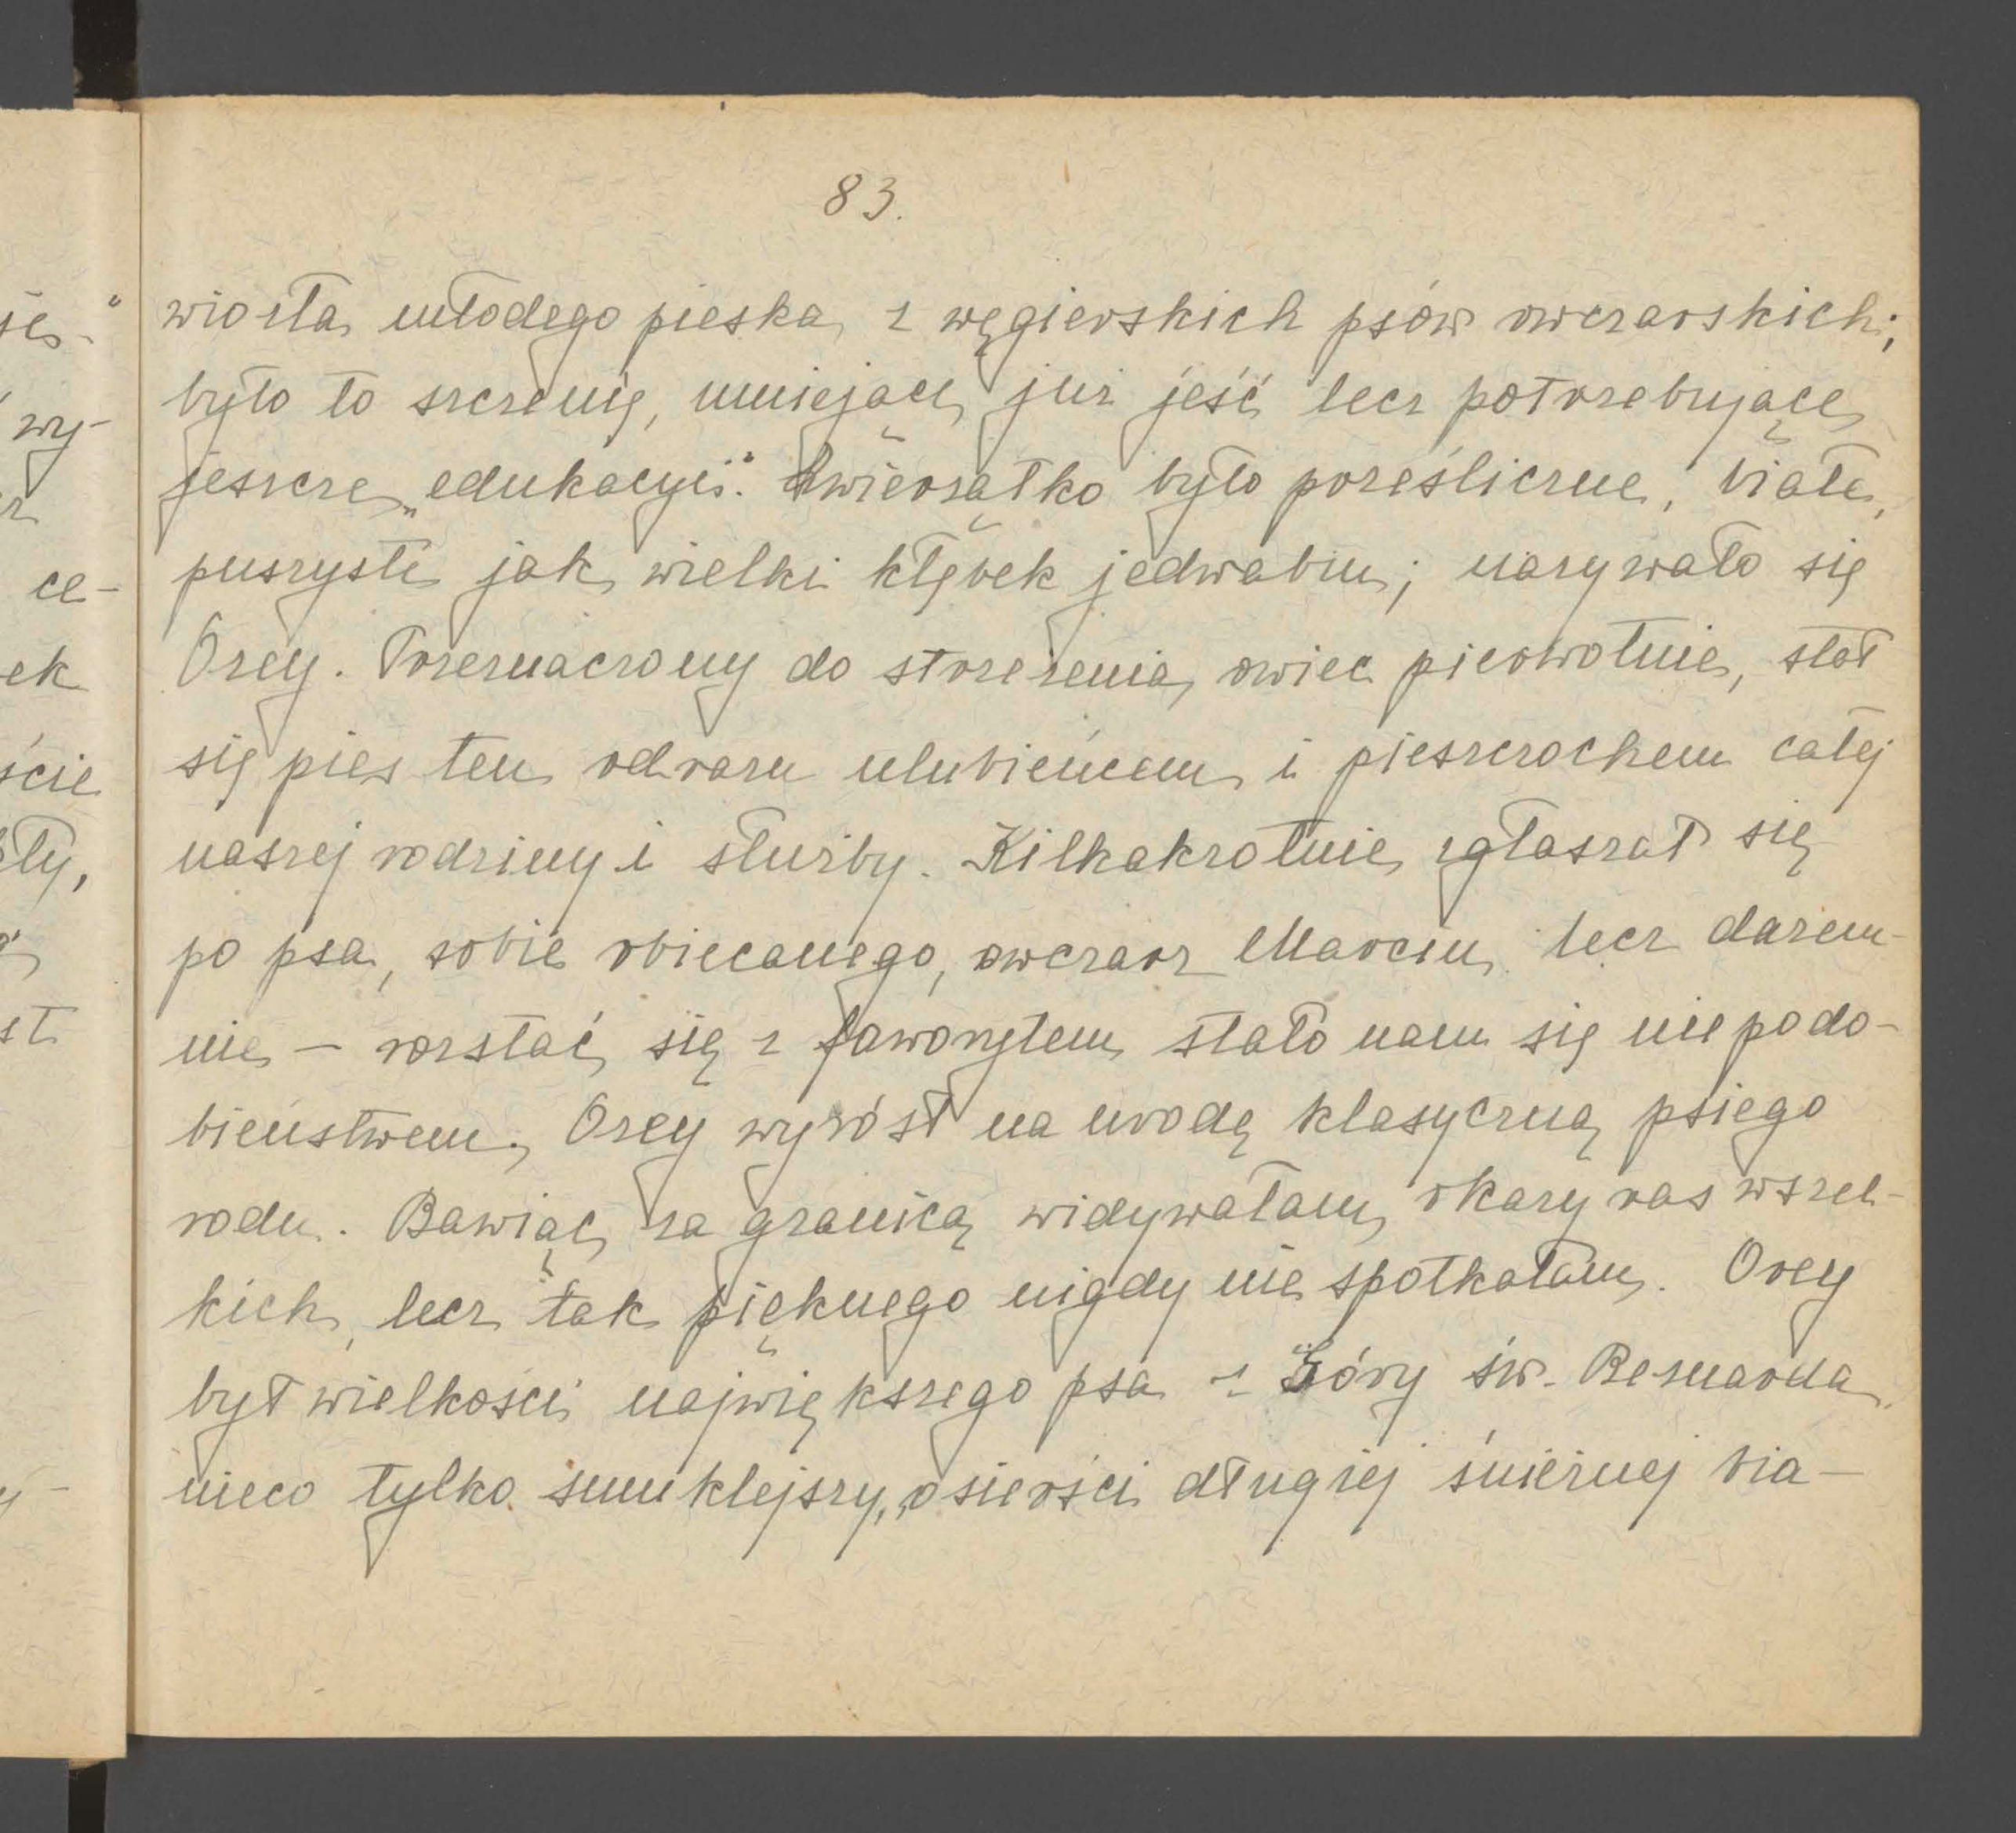 83.
wiozła młodego pieska z węgierskich psów owczarskich;
było to szczenię, umiejące już jeść lecz potrzebujące
jeszcze „edukacyi". Zwierzątko było prześliczne, białe,
puszyste jak wielki kłębek jedwabiu; nazywało się
Orey. Przeznaczony do strzeżenia owiec pierwotnie, stał
się pies ten odrazu ulubieńcem i pieszczochem całej
naszej rodziny i służby. Kilkakrotnie zgłaszał się
po psa, sobie obiecanego, owczarz Marcin lecz darem-
nie – rozstać się z faworytem stało nam się niepodo-
bieństwem. Orey wyrósł na urodę klasyczną psiego
rodu. Bawiąc za granicą widywałam okazy ras wszel-
kich, lecz tak pięknego nigdy nie spotkałam. Orey
był wielkości największego psa z Góry św. Bernarda,
nieco tylko smuklejszy, o sierści długiej śnieżnej bia-
ses-"
wy-
ce-
ek
ście
st